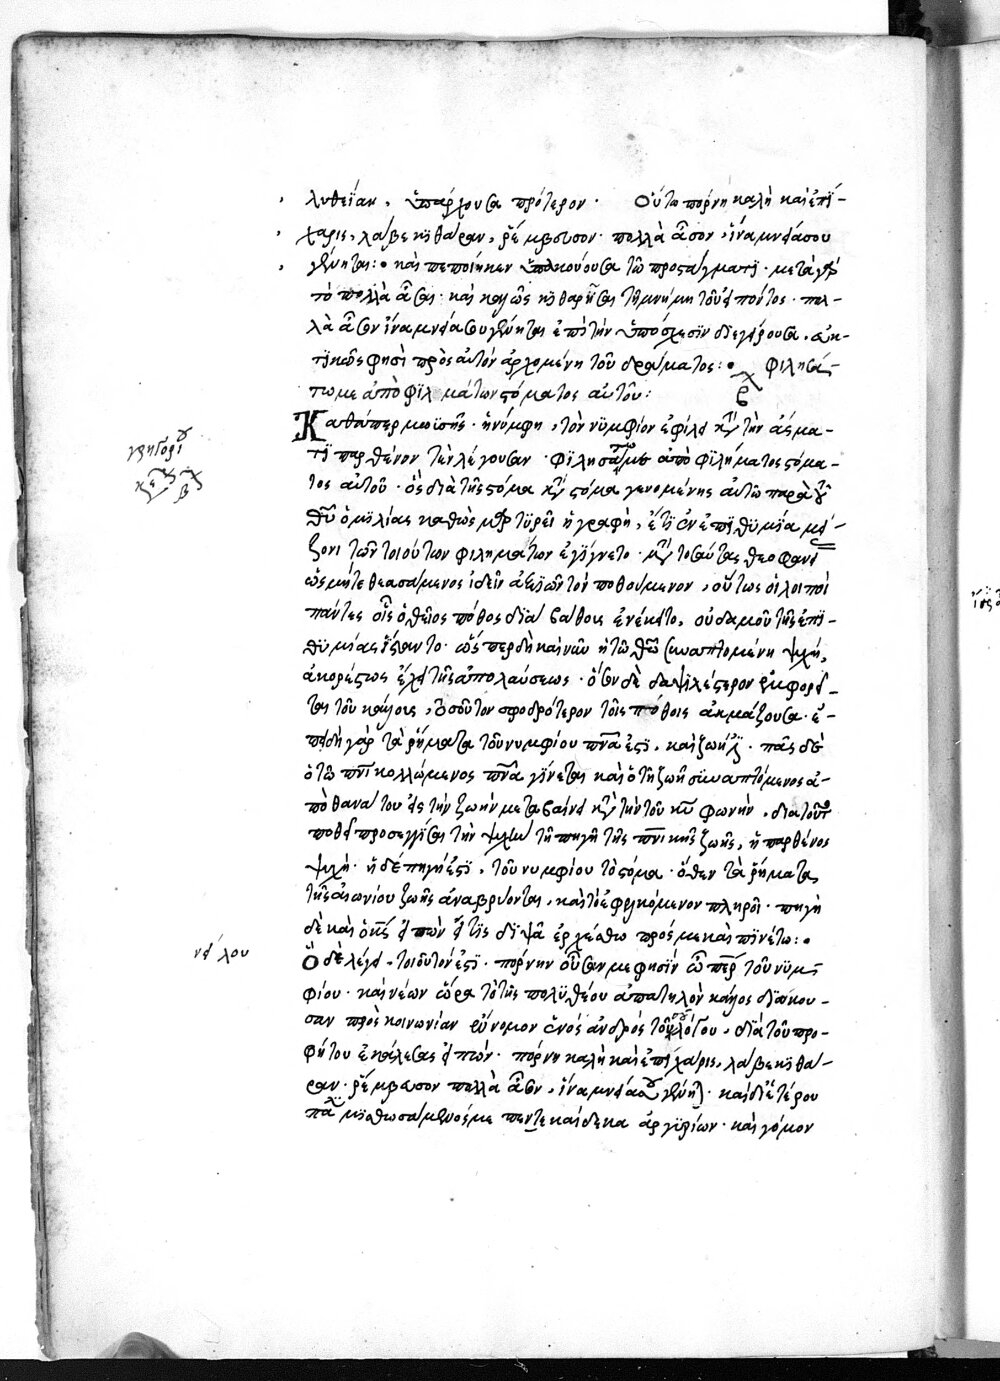 λυθεῖαν, ὑπάρχουσα πρότερον· Οὕτω πόρνη καλὴ καὶ ἐπί-
χαρις, λάβε κιθάραν, ῥέμβευσον· πολλὰ ἆσον, ἵνα μνεία σου
γένηται: καὶ πεποίηκεν ὑπακούουσα τῷ προστάγματι· μετὰ γὰρ
τὸ πολλὰ ἆσαι· καὶ καλῶς κιθαρίσαι τῇ μνήμη τοῦ εἰπόντος· πολ-
λὰ ἆσον ἵνα μνεία σου γένηται ἐπὶ τὴν ὑπόσχεσιν διεγείρουσα.
φησὶ πρὸς αὐτὸν ἀρχομένη τοῦ δράσματος: φιλησά-
τω με ἀπὸ φιλημάτων στόματος αὐτοῦ:
γρηγορίου
Καθάπερ μωϊσῆς· ἡ νύμφη, τὸν νυμφίον ἐφίλει κατὰ τὴν ἄσμα-
τι παρθένον τὴν λέγουσαν· φιλησάτω με ἀπὸ φιλήματος στόμα-
τος αὐτοῦ· ὃς διὰ τῆς στόμα κατὰ στόμα γενομένης αὐτῷ παρὰ τοῦ
θεοῦ ὁμιλίας καθὼς μαρτυρεῖ ἡ γραφὴ, ἔτι ἐν ἐπιθυμία μεί-
ζονι τῶν τοιούτων φιλημάτων ἐγίγνετο· μετὰ τοσαύτας θεοφανεί
ὡς μήτε θεασάμενος ἰδεῖν ἀξιῶν τὸν ποθούμενον, οὕτως οἱ λοιποὶ
πάντες οἷς ὁ θεῖος πόθος διὰ βάθους ἐνέκειτο, οὐδαμοῦ τῆς ἐπι-
θυμίας ἵσταντο· ὥσπερ δὴ καὶ νῦν ἡ τῷ θεῷ συναπτομένη ψυχὴ,
ἀκορέστως ἔχει τῆς ἀπολαύσεως· ὅσον δὲ δαψιλέστερον ἐμφορεῖ-
ται τοῦ κάλλους, τοσοῦτον σφοδρότερον τοῖς πόθοις ἀκμάζουσα· ἐ-
πειδὴ γὰρ τὰ ῥήματα τοῦ νυμφίου πνεῦμα ἐστι, καὶ ζωή ἐστι· πᾶς δὲ
ὁ τῷ πνεύματι κολλώμενος πνεῦμα γίνεται καὶ ὁ τῇ ζωῇ συναπτόμενος ἀ-
πὸ θανάτου εἰς τὴν ζωὴν μεταβαίνει κατὰ τὴν τοῦ κυρίου φωνὴν, διὰ τοῦτο
ποθεῖ προσεγγίσαι τὴν ψυχὴν τῇ πηγῇ τῆς πνευματικῆς ζωῆς, ἡ παρθένος
ψυχὴ· ἡ δὲ πηγή ἐστι, τοῦ νυμφίου τὸ στόμα· ὅθεν τὰ ῥήματα
τῆς αἰωνίου ζωῆς ἀναβρύονται, καὶ τὸ ἐφελκόμενον πληροῖ· πηγὴ
δὲ καὶ ὁ κύριος εἰπὼν εἴ τις διψᾶ ἐρχέσθω πρός με καὶ πινέτω:
νείλου
Ὃ δὲ λέγει, τοιοῦτόν ἐστι· πόρνην οὖσαν με φησὶν ὦ πάτερ τοῦ νυμ-
φίου· καὶ νέων ὥρα τὸ τῆς πολυθέου ἀπατηλὸν κάλλος διάκου-
σαν πρὸς κοινωνίαν εὔνομον ἑνὸς ἀνδρὸς τοῦ λόγου, διὰ τοῦ προ-
φήτου ἐκάλεσας εἰπών· πόρνη καλὴ καὶ ἐπίχαρις, λάβε κιθά-
ραν· ῥέμβευσον πολλὰ ἆσον, ἵνα μνεία σου γένηται· καὶ δι' ἑτέρου
πάλιν μισθωσάμενός με πεντεκαίδεκα ἀργυρίων· καὶ γόμον